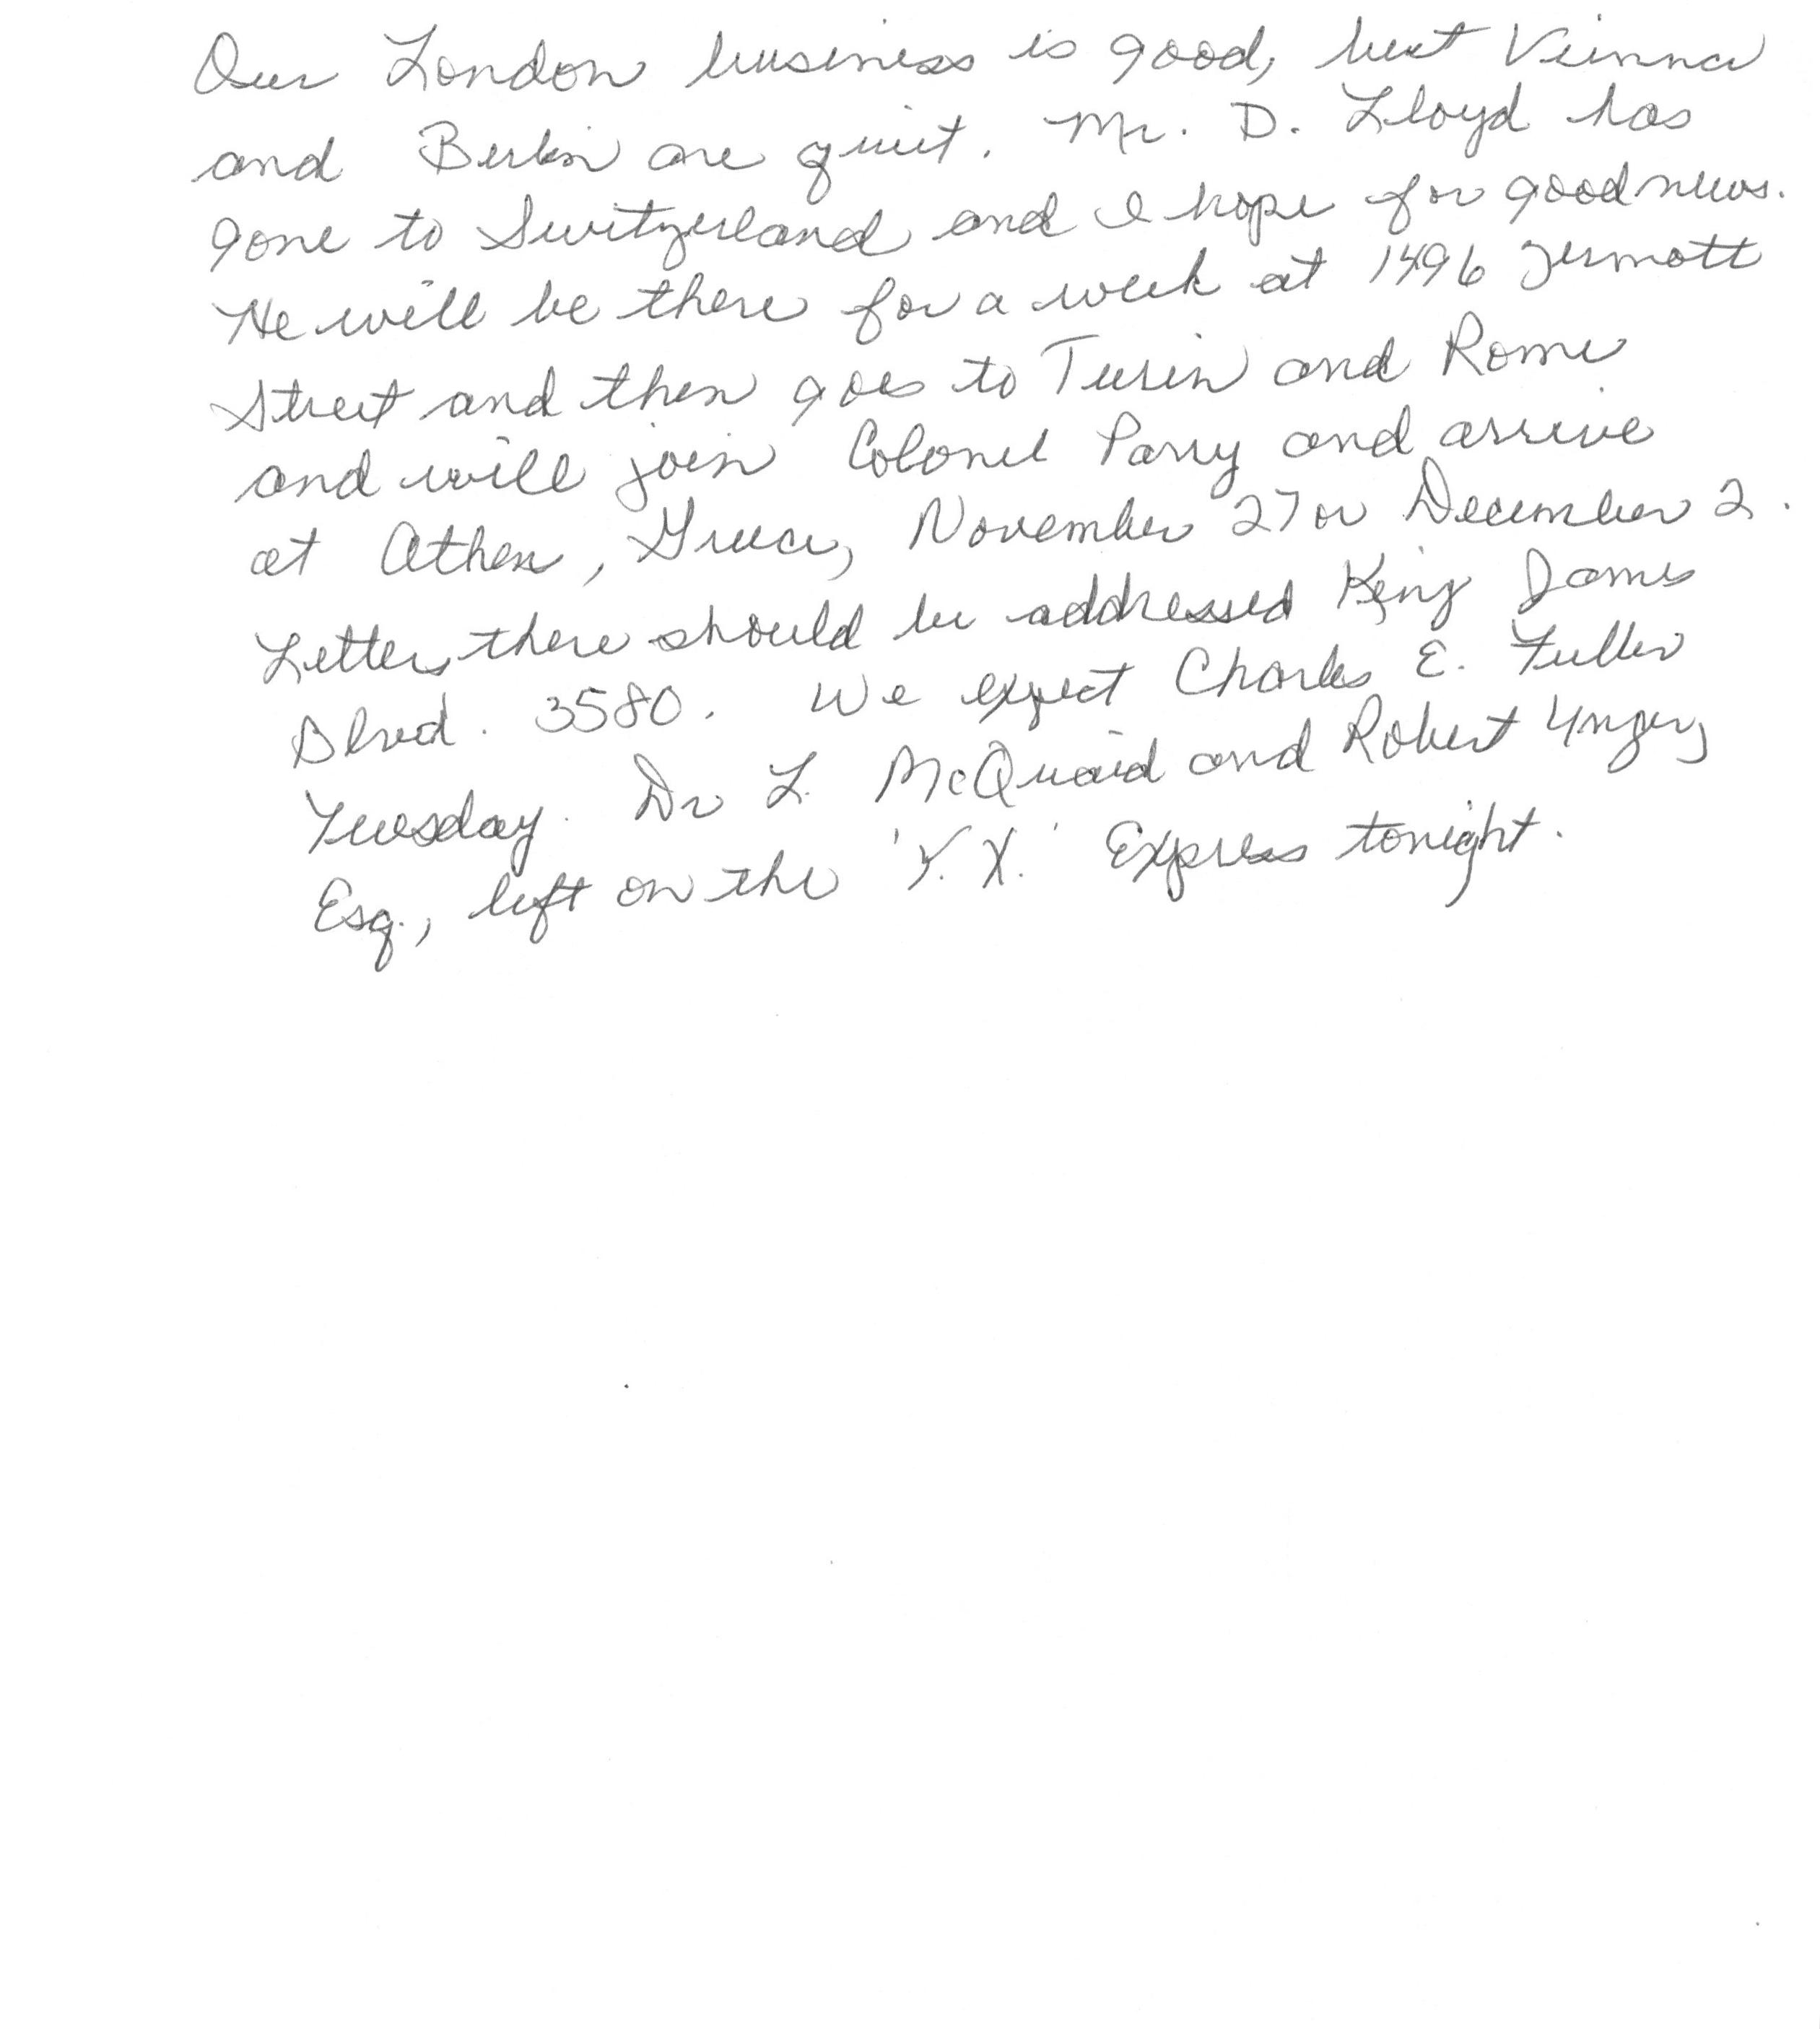 Our London business is good, but Vienna
and Berlin are quiet. Mr. D. Lloyd has
gone to Switzerland and I hope for good news.
He will be there for a week at 1496 Zermott
Street and then goes to Turin and Rome
and will join Colonel Parry and arrive
at Athens, Greece, November 27 or December 2.
Letters there should be addressed King James
Blvd. 3580. We expect Charles E. Fuller
Tuesday. Dr L. McQuaid and Robert Unger,
Esq., left on the 'Y. X.' Express tonight.